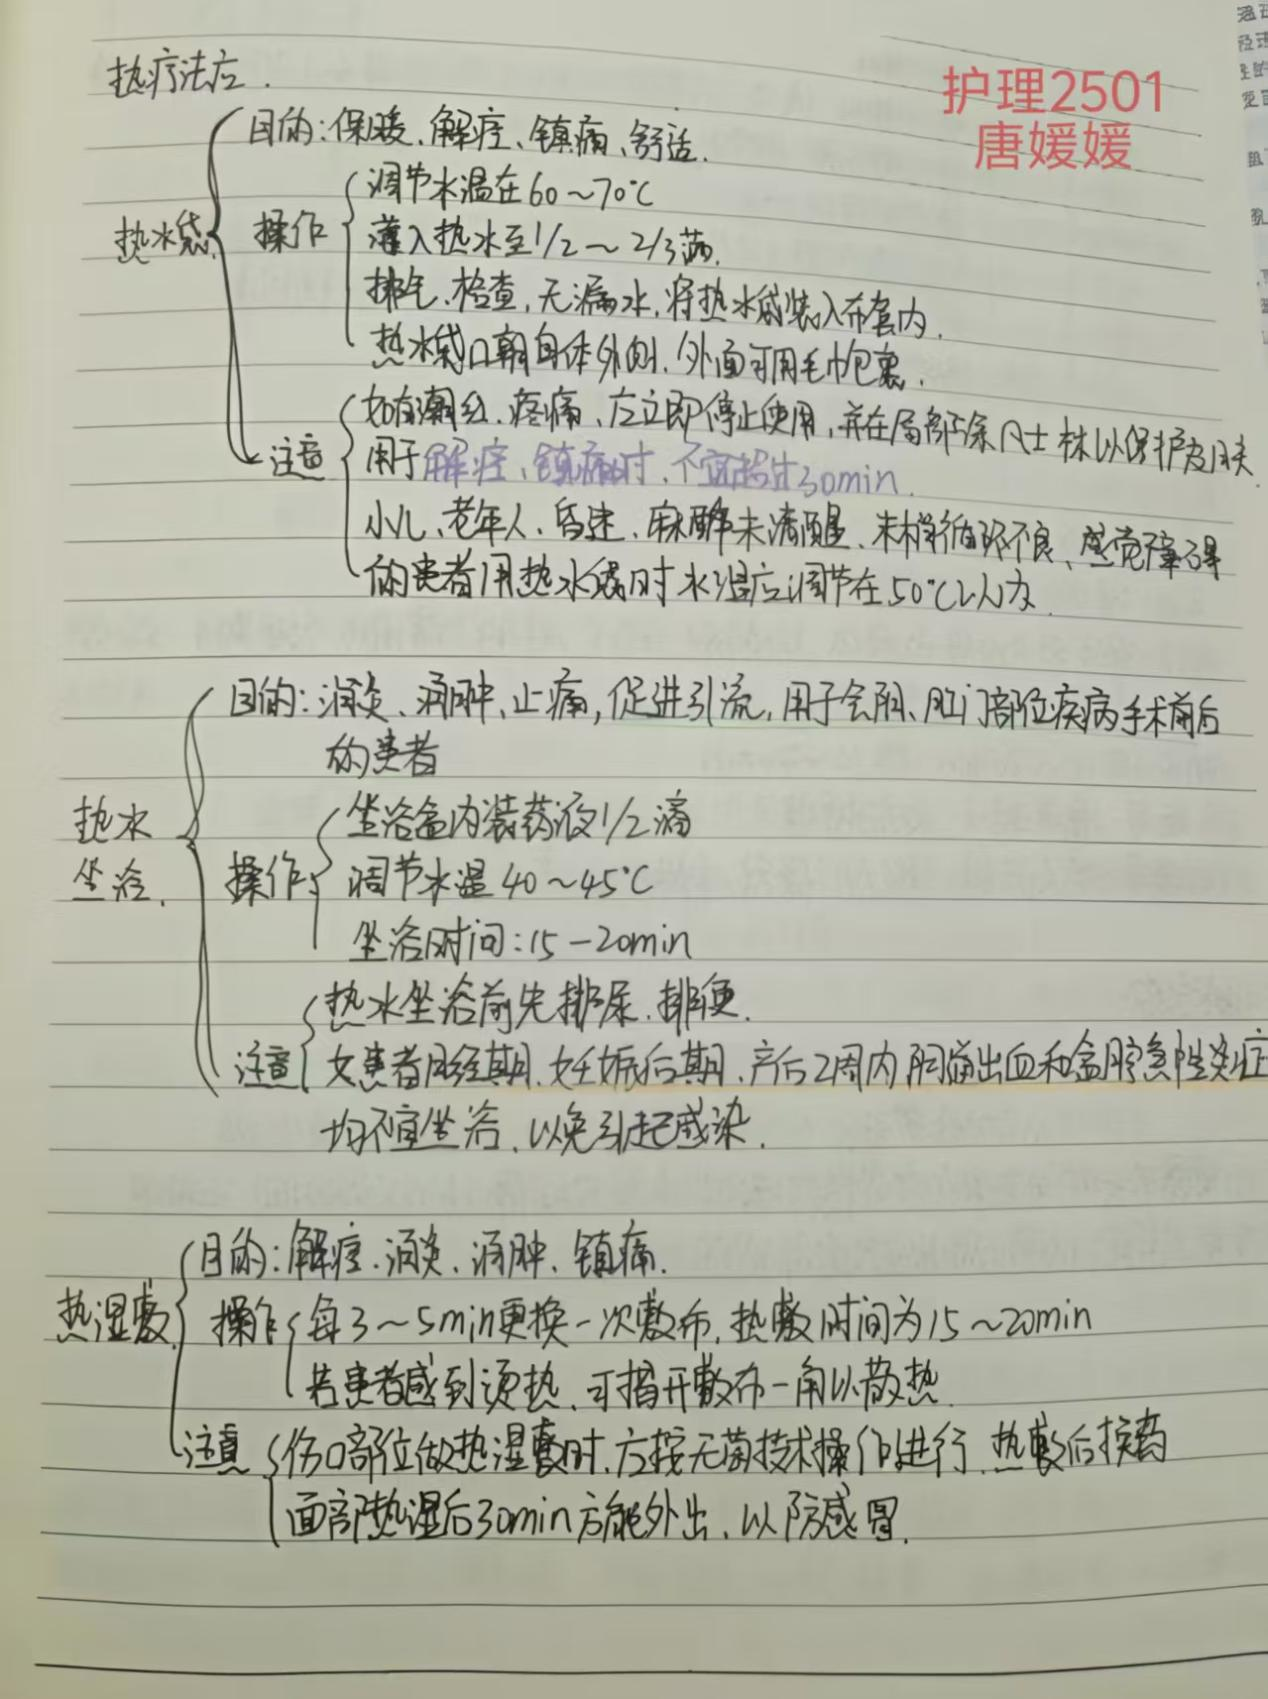 热疗法应.
护理2501
唐媛媛
目的:保暖、解痉、镇痛、舒适.
热水袋
操作
调节水温在60～70℃
灌入热水至1/2～2/3满.
排气、检查,无漏水,将热水袋装入布套内.
热水袋口朝身体外侧.外面可用毛巾包裹.
注意
如有潮红、疼痛,应立即停止使用,并在局部涂凡士林以保护皮肤.
用于解痉、镇痛时、不宜超过30min.
小儿、老年人、昏迷、麻醉未清醒、末梢循环不良、感觉障碍
的患者用热水袋时水温应调节在50℃以内.
热水
坐浴.
目的:消炎、消肿、止痛,促进引流,用于会阴、肛门部位疾病手术前后
的患者
操作
坐浴盆内装药液1/2满
调节水温40～45℃
坐浴时间:15-20min
注意
热水坐浴前先排尿、排便.
女患者月经期、妊娠后期、产后2周内阴道出血和盆腔急性炎症
均不宜坐浴、以免引起感染.
热湿敷
目的:解痉、消炎、消肿、镇痛.
操作
每3～5min更换一次敷布,热敷时间为15～20min
若患者感到烫热、可揭开敷布一角以散热.
注意
伤口部位做热湿敷时、应按无菌技术操作进行、热敷后换药
面部热湿后30min方能外出、以防感冒.